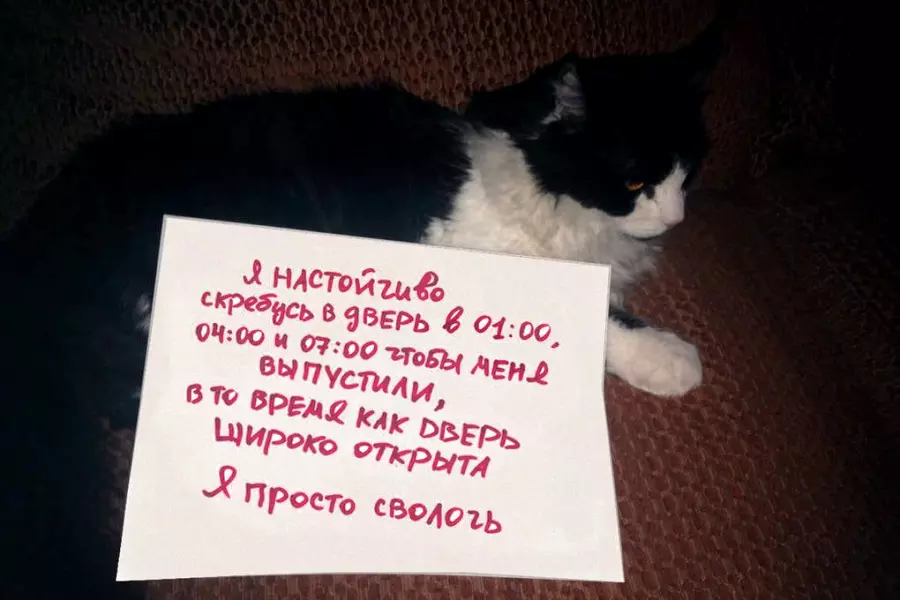 Я НАСТОЙЧИВО
скребусь в дверь в 01:00,
04:00 и 07:00 чтобы меня
ВЫПУСТИЛИ,
в то время как дверь
широко открыта
Я просто сволочь